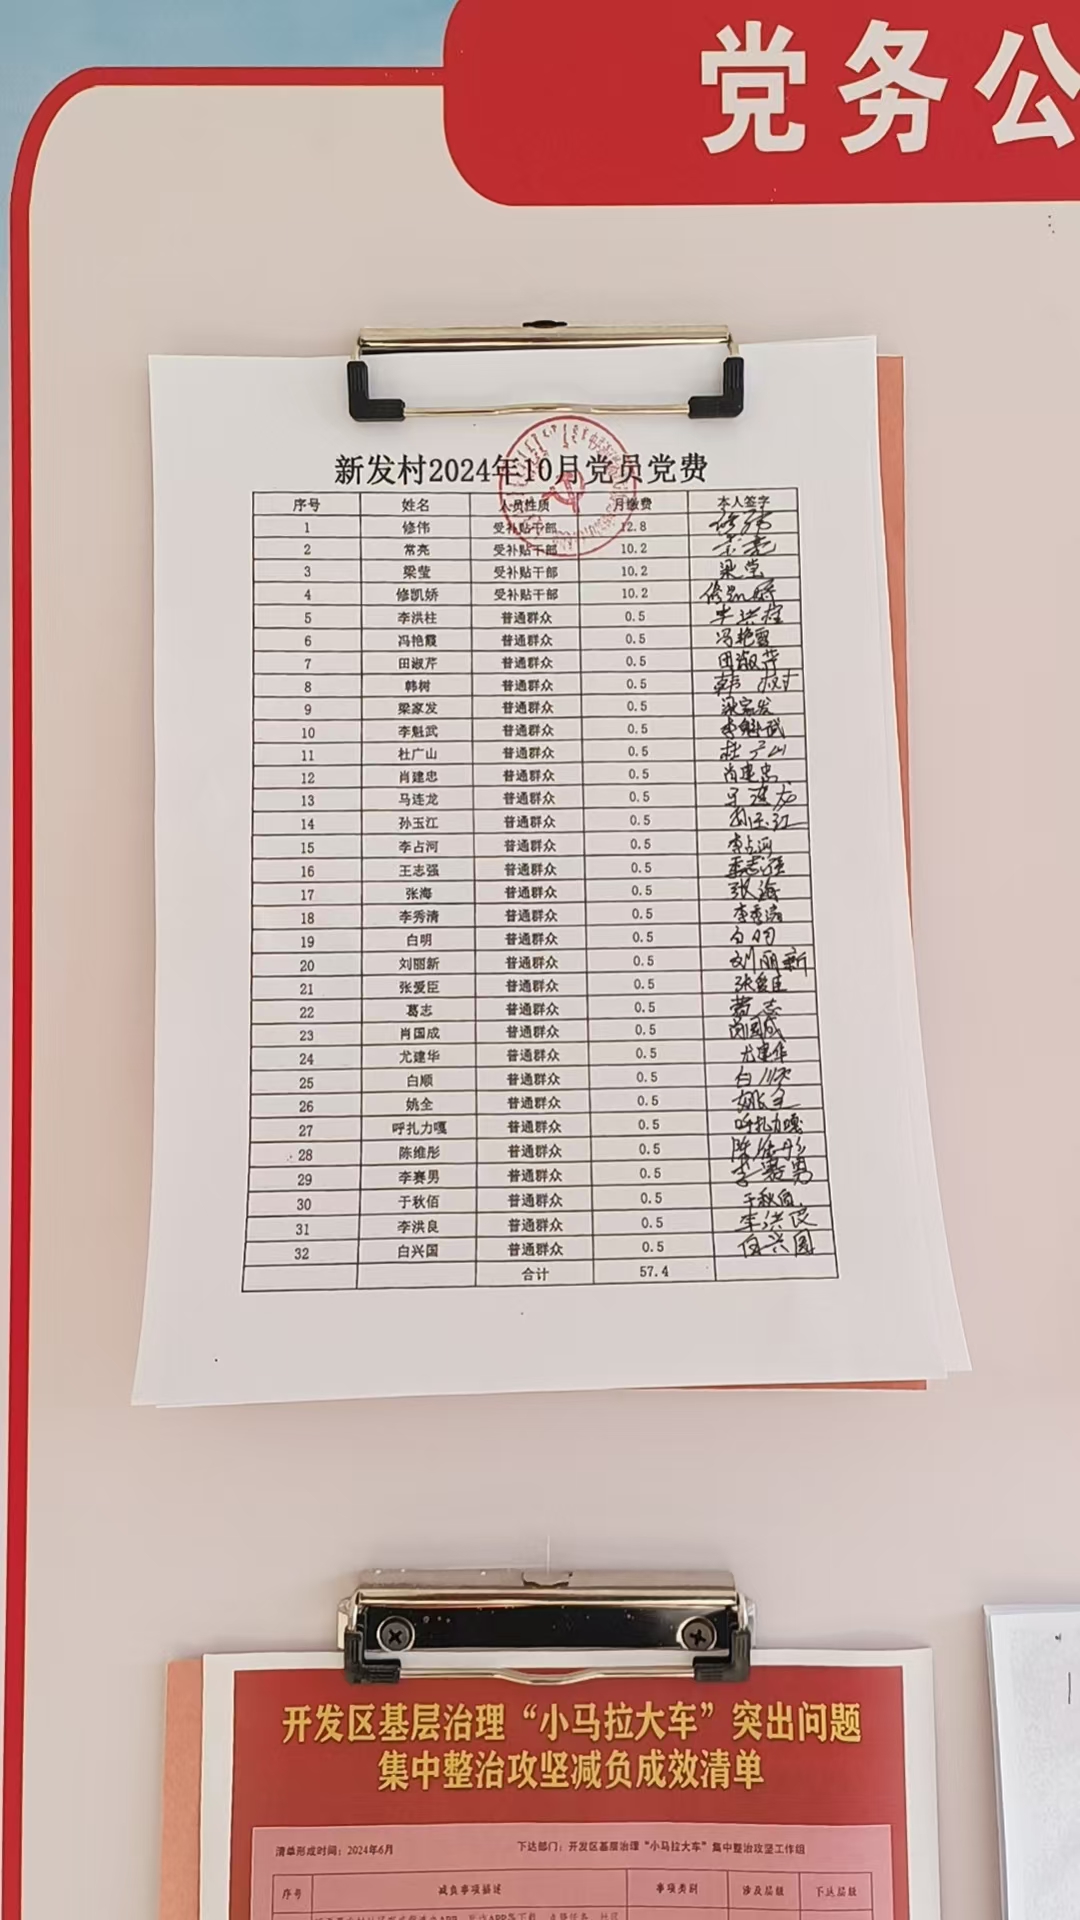 党务公
新发村2024年10月党员党费
序号 姓名 人员性质 月缴费 本人签字
1 修伟 受补贴干部 12.8 修伟
2 常亮 受补贴干部 10.2 常亮
3 梁莹 受补贴干部 10.2 梁莹
4 修凯娇 受补贴干部 10.2 修凯娇
5 李洪柱 普通群众 0.5 李洪柱
6 冯艳霞 普通群众 0.5 冯艳霞
7 田淑芹 普通群众 0.5 田淑芹
8 韩树 普通群众 0.5 韩树
9 梁家发 普通群众 0.5 梁家发
10 李魁武 普通群众 0.5 李魁武
11 杜广山 普通群众 0.5 杜广山
12 肖建忠 普通群众 0.5 肖建忠
13 马连龙 普通群众 0.5 马连龙
14 孙玉江 普通群众 0.5 孙玉江
15 李占河 普通群众 0.5 李占河
16 王志强 普通群众 0.5 王志强
17 张海 普通群众 0.5 张海
18 李秀清 普通群众 0.5 李秀清
19 白明 普通群众 0.5 白明
20 刘丽新 普通群众 0.5 刘丽新
21 张爱臣 普通群众 0.5 张爱臣
22 葛志 普通群众 0.5 葛志
23 肖国成 普通群众 0.5 肖国成
24 尤建华 普通群众 0.5 尤建华
25 白顺 普通群众 0.5 白顺
26 姚全 普通群众 0.5 姚全
27 呼扎力嘎 普通群众 0.5 呼扎力嘎
28 陈维彤 普通群众 0.5 陈维彤
29 李赛男 普通群众 0.5 李赛男
30 于秋佰 普通群众 0.5 于秋佰
31 李洪良 普通群众 0.5 李洪良
32 白兴国 普通群众 0.5 白兴国
合计 57.4
开发区基层治理“小马拉大车”突出问题
集中整治攻坚减负成效清单
清单形成时间：2024年6月 下达部门：开发区基层治理“小马拉大车”集中整治攻坚工作组
序号 减负事项描述 事项类别 涉及层级 下达层级